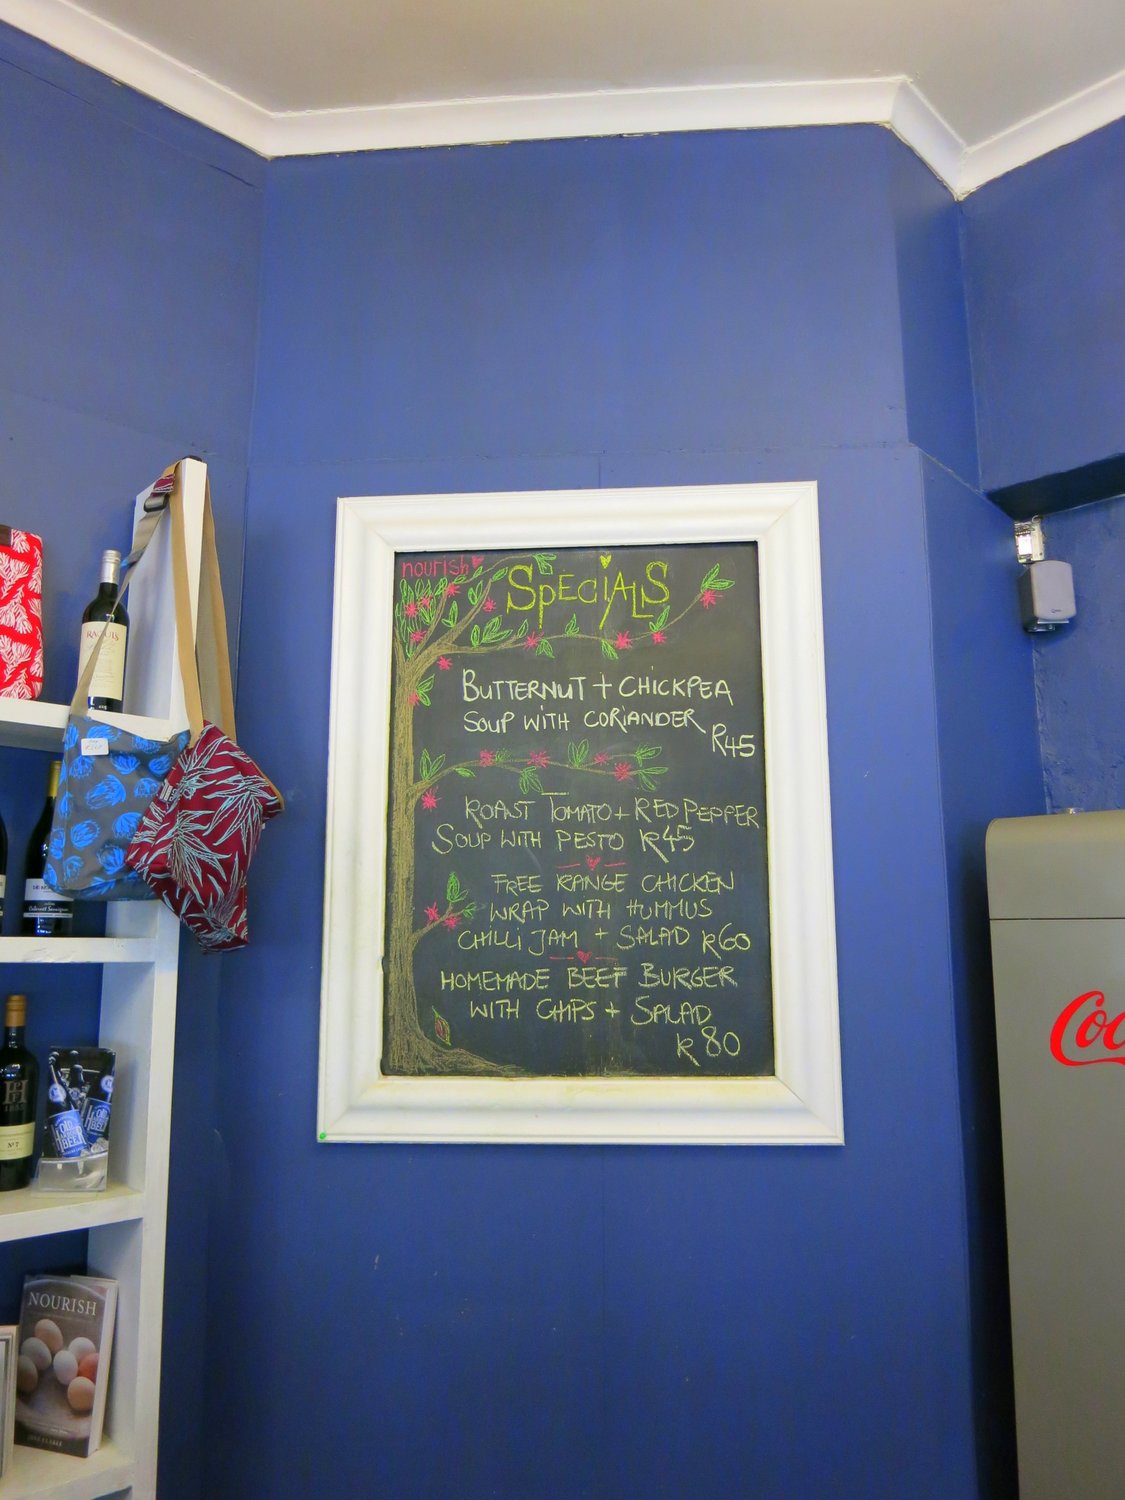 nourish
SPECIALS
BUTTERNUT + CHICKPEA
SOUP WITH CORIANDER
R45
ROAST TOMATO + RED PEPPER
SOUP WITH PESTO R45
FREE RANGE CHICKEN
WRAP WITH HUMMUS
CHILLI JAM + SALAD R60
HOMEMADE BEEF BURGER
WITH CHIPS + SALAD
R80
Cabernet Sauvignon
Nº7
NOURISH
Coc